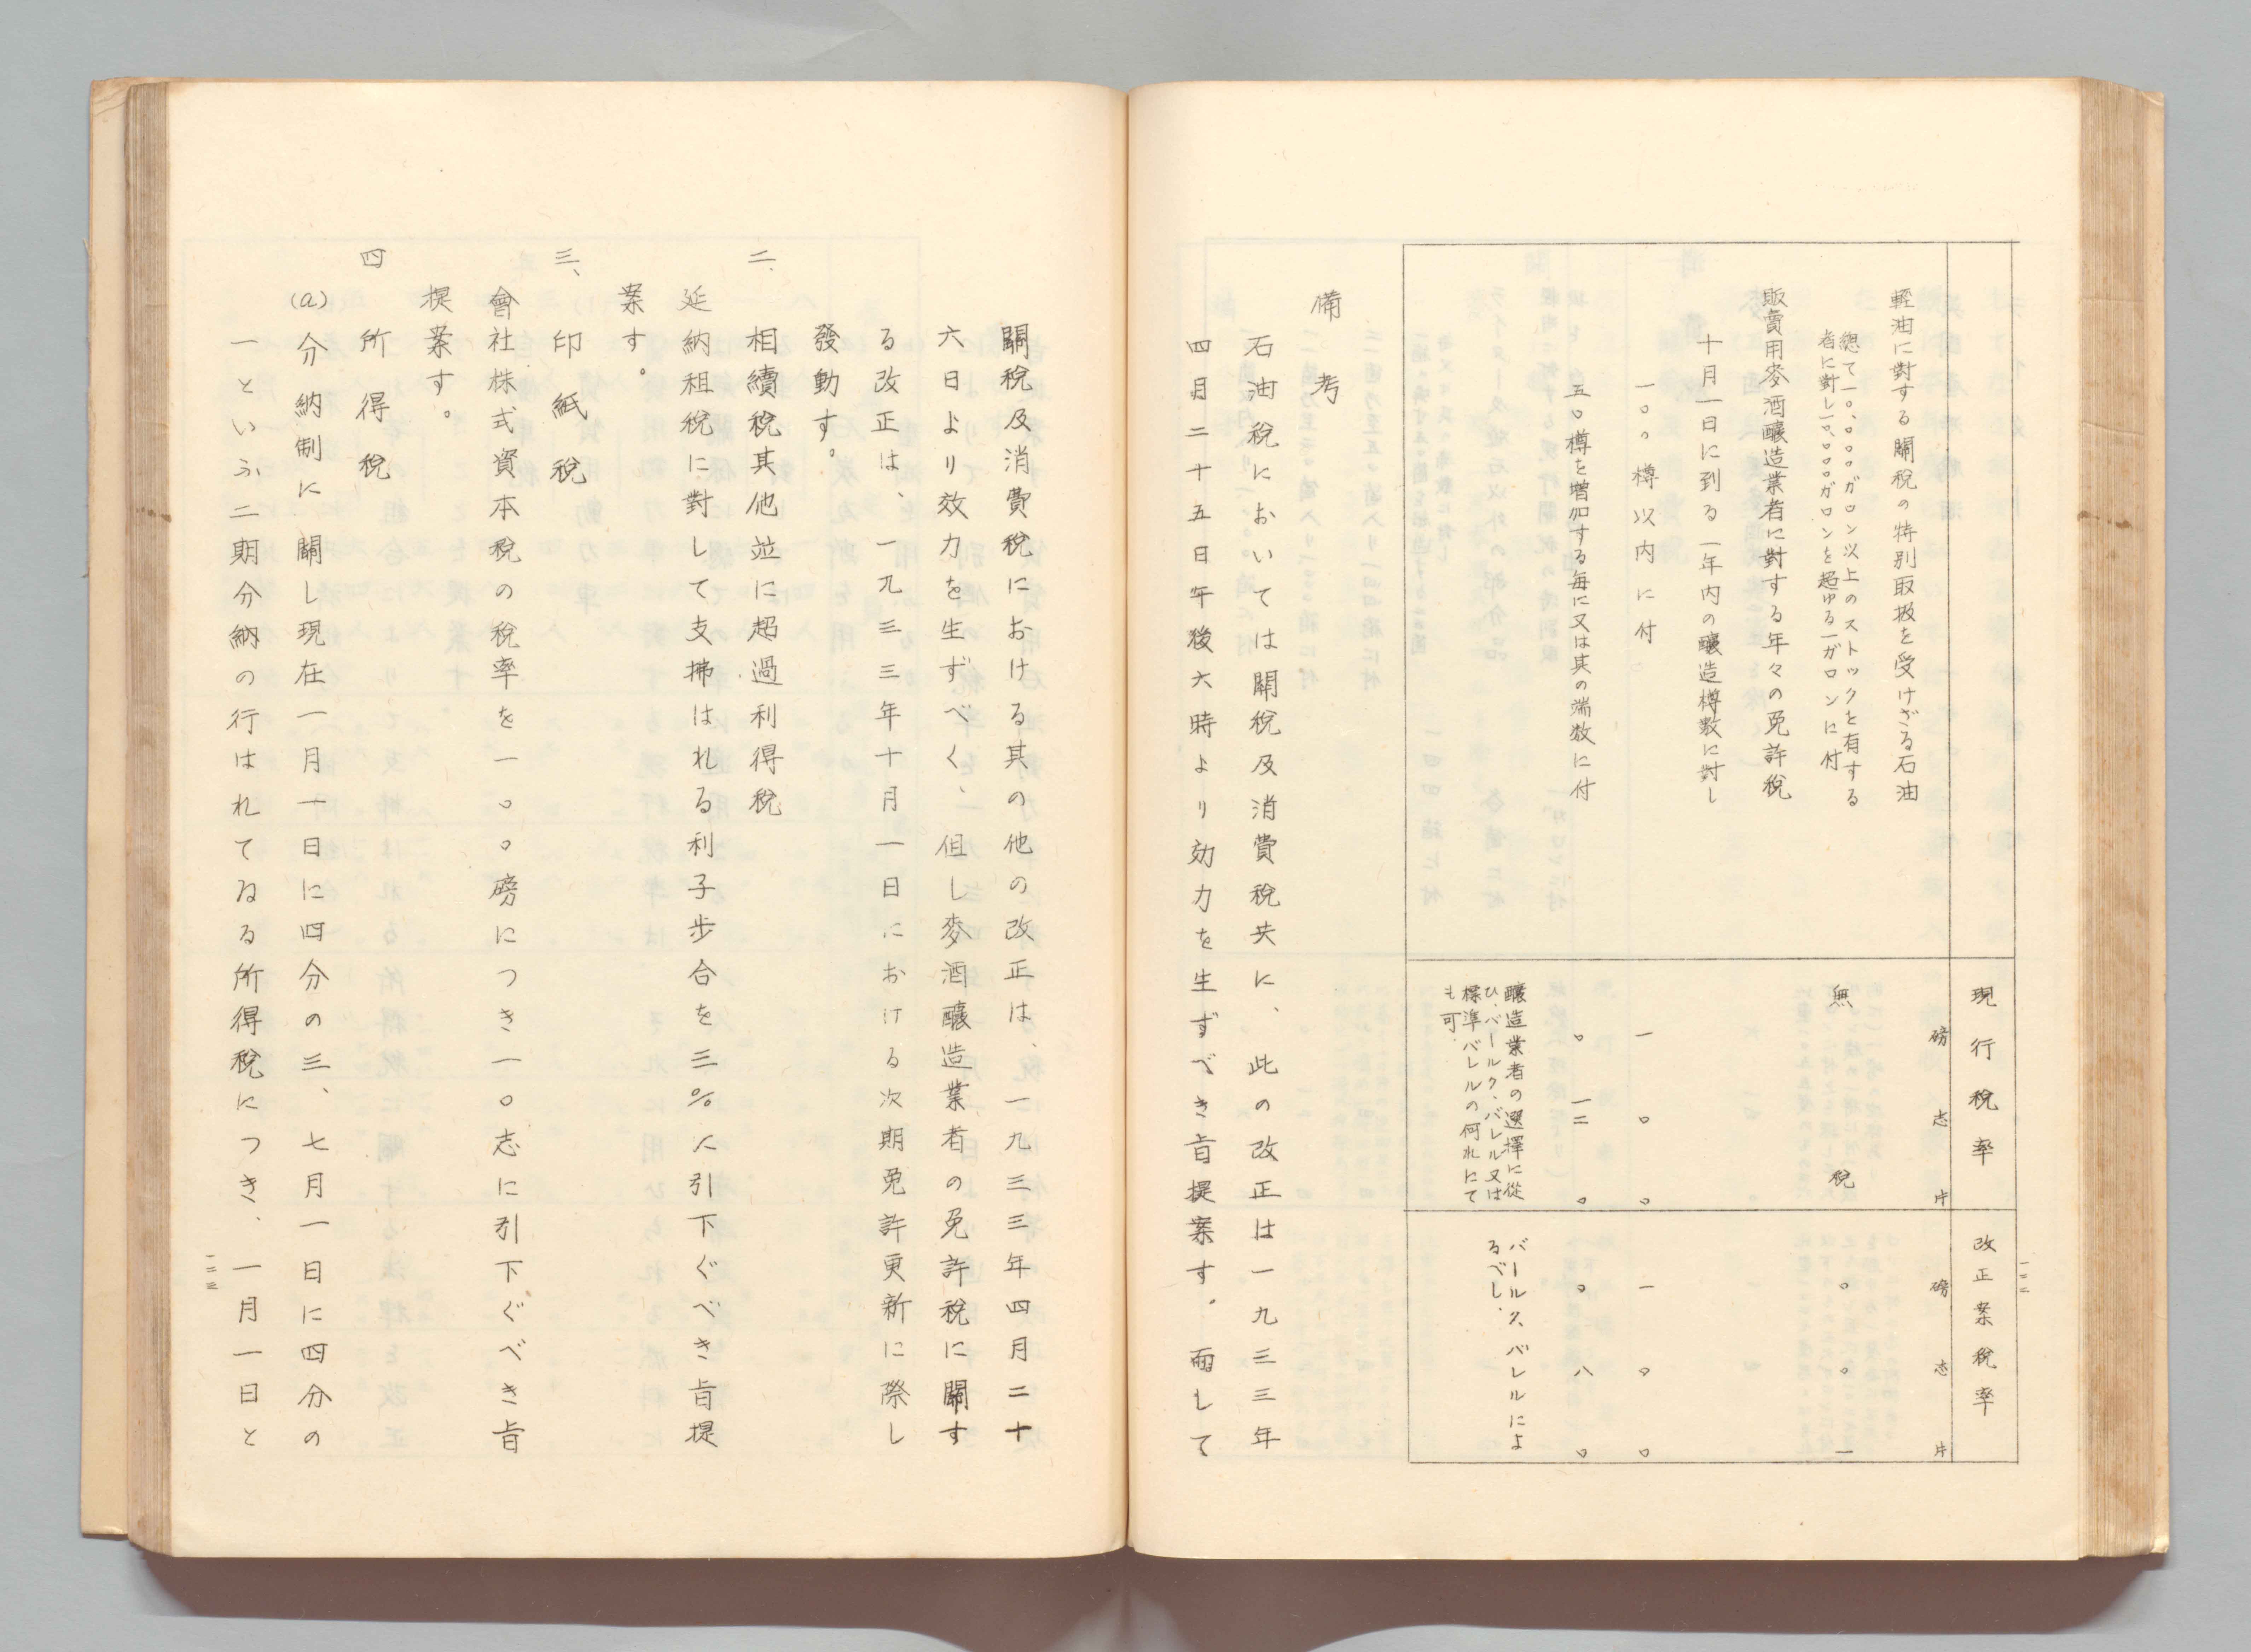 一二二
現行税率
改正案税率
磅 志 片
磅 志 片
輕油に對する關税の特別取扱を受けざる石油
總て一〇、〇〇〇ガロン以上のストックを有する
者に對し一〇、〇〇〇ガロンを超ゆる一ガロンに付
無 税
〇 〇 一
販賣用麥酒醸造業者に對する年々の免許税
十月一日に到る一年内の醸造樽数に對し
一〇〇樽以内に付
一 〇 〇
一 〇 〇
五〇樽を増加する毎に又は其の端数に付
〇 一二 〇
〇 八 〇
醸造業者の選擇に從
ひ、バールク、バレル又は
標準バレルの何れにて
も可、
バールク、バレルによ
るべし、
備考
石油税においては關税及消費税共に、此の改正は一九三三年
四月二十五日午後六時より効力を生ずべき旨提案す。而して
關税及消費税における其の他の改正は、一九三三年四月二十
六日より效力を生ずべく、但し麥酒醸造業者の免許税に關す
る改正は、一九三三年十月一日における次期免許更新に際し
發動す。
二、相續税其他並に超過利得税
延納租税に對して支拂はれる利子歩合を三%に引下ぐべき旨提
案す。
三、印紙税
會社株式資本税の税率を一〇〇磅につき一〇志に引下ぐべき旨
提案す。
四 所得税
(a)分納制に關し現在一月一日に四分の三、七月一日に四分の
一といふ二期分納の行はれてゐる所得税につき、一月一日と
一二三